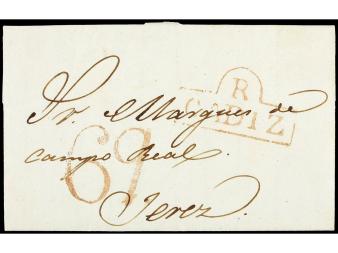 R
CADIZ
Sr. Marques de
campo Real.
69
Jerez.